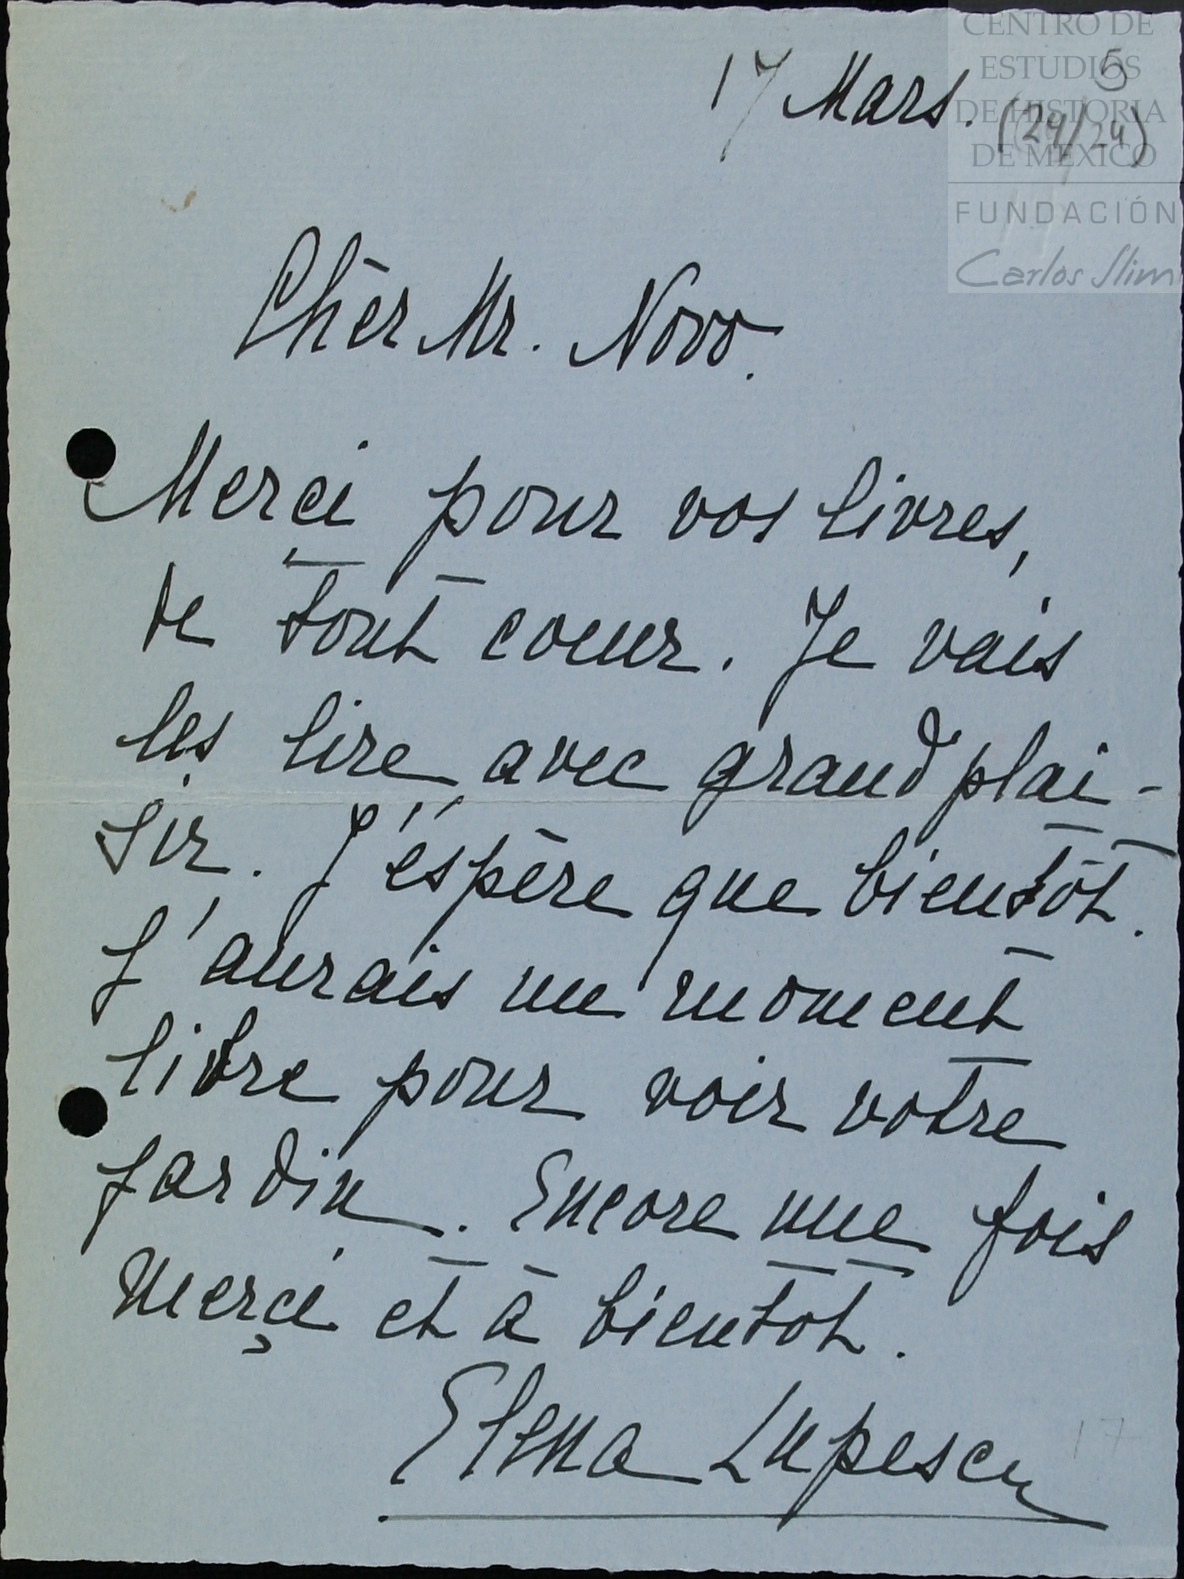 CENTRO DE
ESTUDIOS
DE HISTORIA
DE MÉXICO
FUNDACIÓN
Carlos Slim
5
17 Mars. (24/24)
Chèr Mr. Novo.
Merçi pour vos livres,
de tout coeur. Je vais
les lire avec grand plai-
sir. J'éspère que bientôt.
j'aurais un moment
libre pour voir votre
jardin. Encore une fois
merçi et à bientot.
Elena Lupescu
17